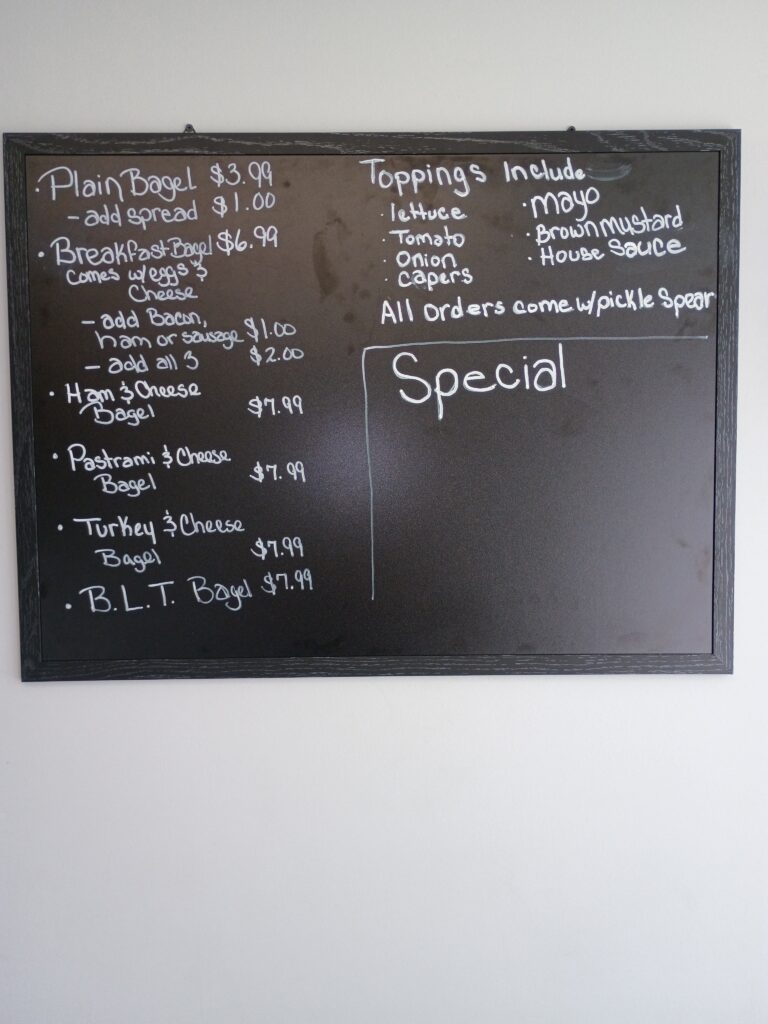 • Plain Bagel $3.99
- add spread $1.00
• Breakfast Bagel $6.99
comes w/eggs &
Cheese
- add Bacon,
ham or sausage $1.00
- add all 3 $2.00
• Ham & Cheese
Bagel $7.99
• Pastrami & Cheese
Bagel $7.99
• Turkey & Cheese
Bagel $7.99
• B.L.T. Bagel $7.99
Toppings Include
• lettuce
• Tomato
• Onion
• capers
• mayo
• Brown mustard
• House Sauce
All orders come w/pickle Spear
Special